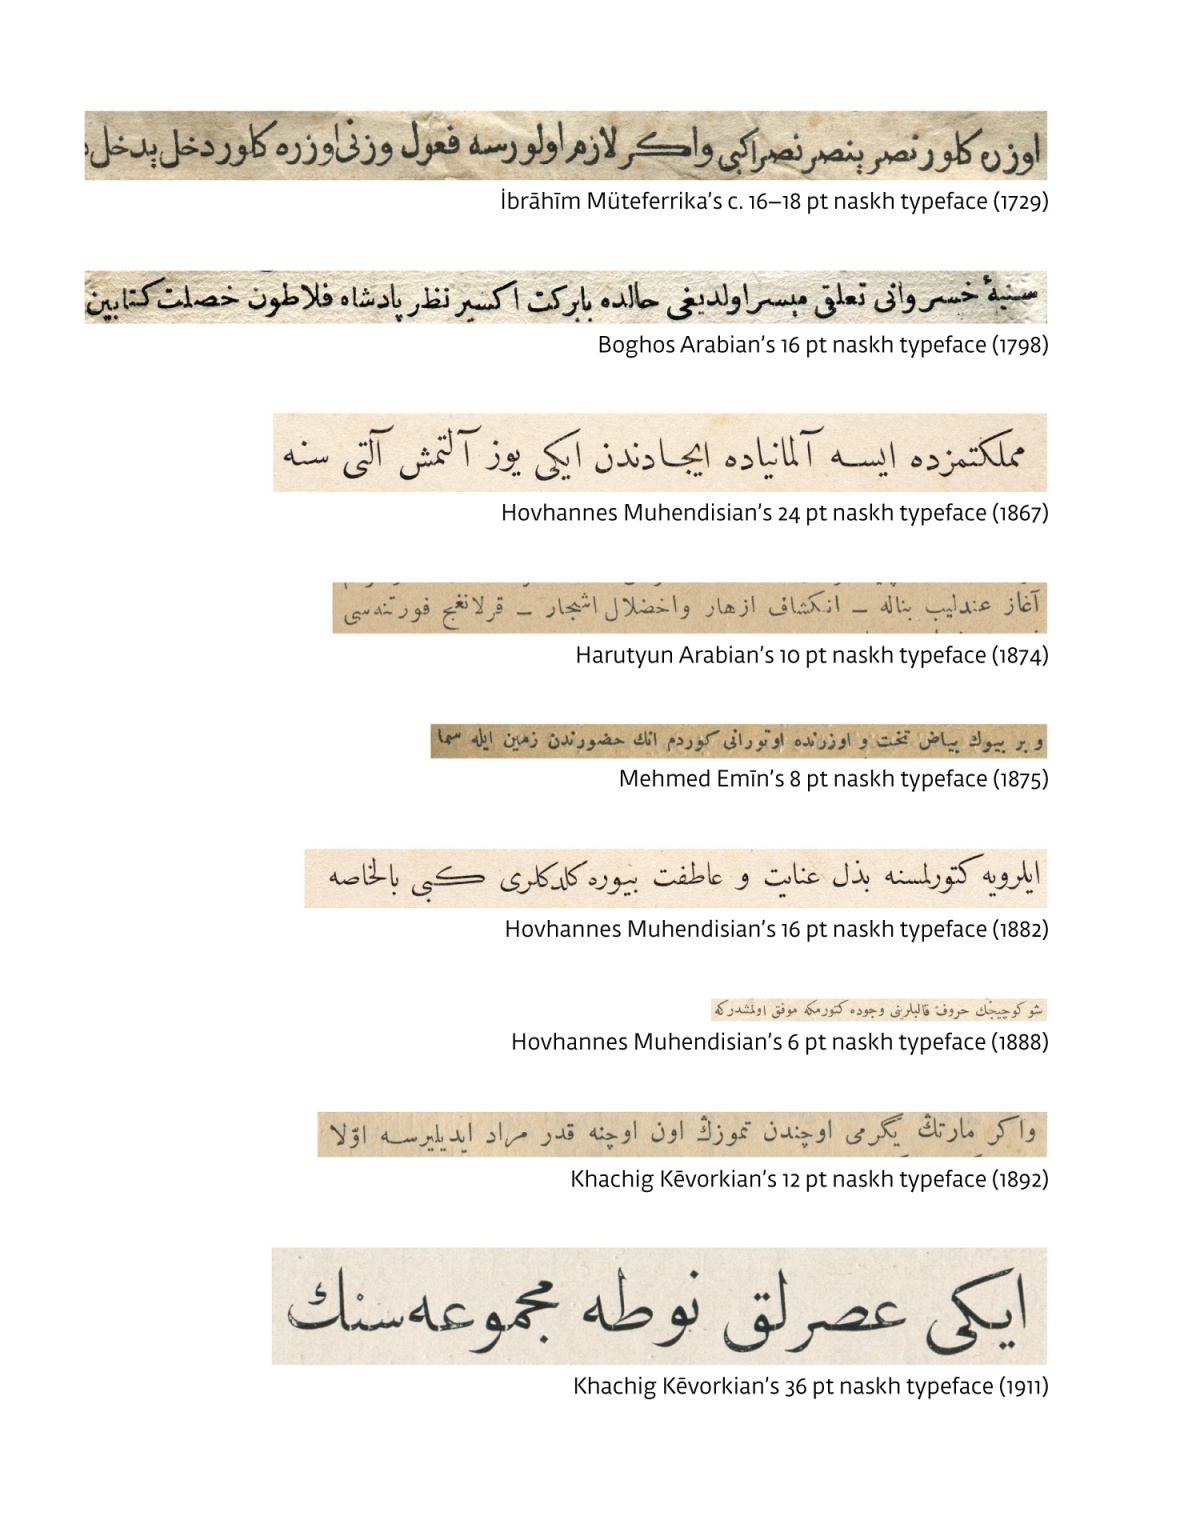 اوزره كلور نصر ينصر نصراكبى واكر لازم اولورسه فعول وزنى اوزره كلور دخل يدخل
İbrāhīm Müteferrika’s c. 16–18 pt naskh typeface (1729)
سنيهٔ خسروانى تعلق ميسر اولديغى حالده بابركت اكسير نظر پادشاه فلاطون خصلت كتابين
Boghos Arabian’s 16 pt naskh typeface (1798)
مملكتمزده ايسه آلمانياده ايجادندن ايكى يوز آلتمش آلتى سنه
Hovhannes Muhendisian’s 24 pt naskh typeface (1867)
آغاز عندليب بناله – انكشاف ازهار واخضلال اشجار – قرلانغج فورتنه‌سى
Harutyun Arabian’s 10 pt naskh typeface (1874)
و بر بيوك بياض تخت و اوزرنده اوتورانى كوردم انك حضورندن زمين ايله سما
Mehmed Emīn’s 8 pt naskh typeface (1875)
ايلرويه كتورلمسنه بذل عنايت و عاطفت بيوره كلدكلرى كبى بالخاصه
Hovhannes Muhendisian’s 16 pt naskh typeface (1882)
شو كوچيجك حروف قالبلرينى وجوده كتورمكه موفق اولمشدركه
Hovhannes Muhendisian’s 6 pt naskh typeface (1888)
واكر مارتڭ يگرمى اوچندن تموزڭ اون اوچنه قدر مراد ايديليرسه اوّلا
Khachig Kēvorkian’s 12 pt naskh typeface (1892)
ايكى عصرلق نوطه مجموعه‌سنك
Khachig Kēvorkian’s 36 pt naskh typeface (1911)